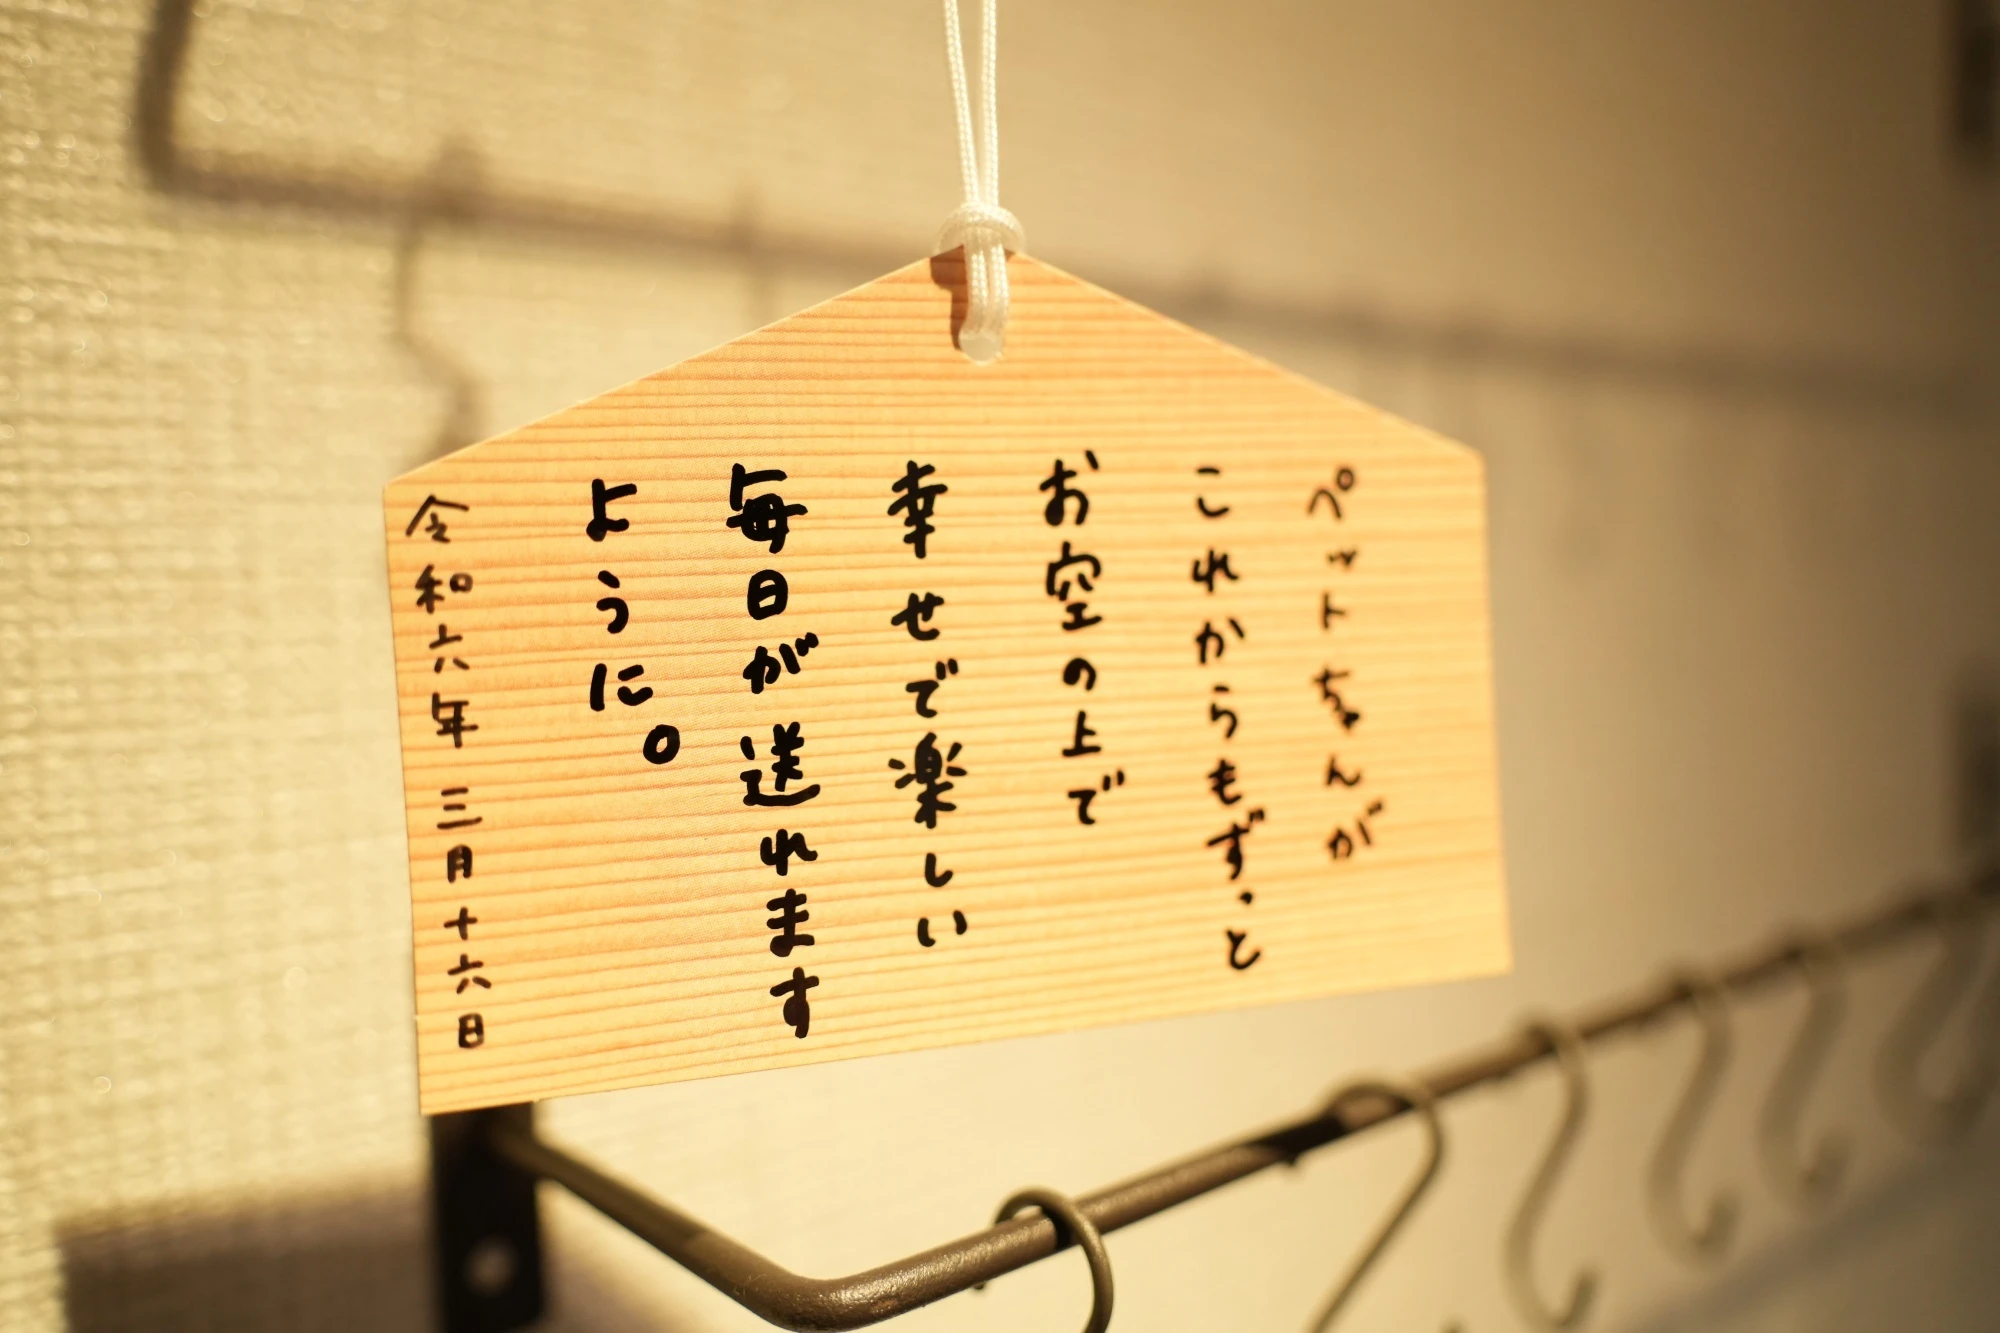 ペットちゃんが
これからもずっと
お空の上で
幸せで楽しい
毎日が送れます
ように。
令和六年 三月十六日